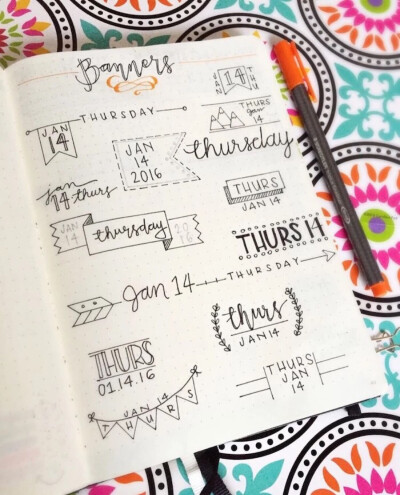 Banners
JAN 14 THU
THURSDAY
JAN
14
THURS
jan
14
JAN
14
2016
thursday
jan
14 thurs
THURS
JAN 14
JAN
14
thursday
20
16
THURS 14
jan 14
THURSDAY
thurs
JAN 14
THURS
01.14.16
THURS
JAN
14
JAN 14
THURS